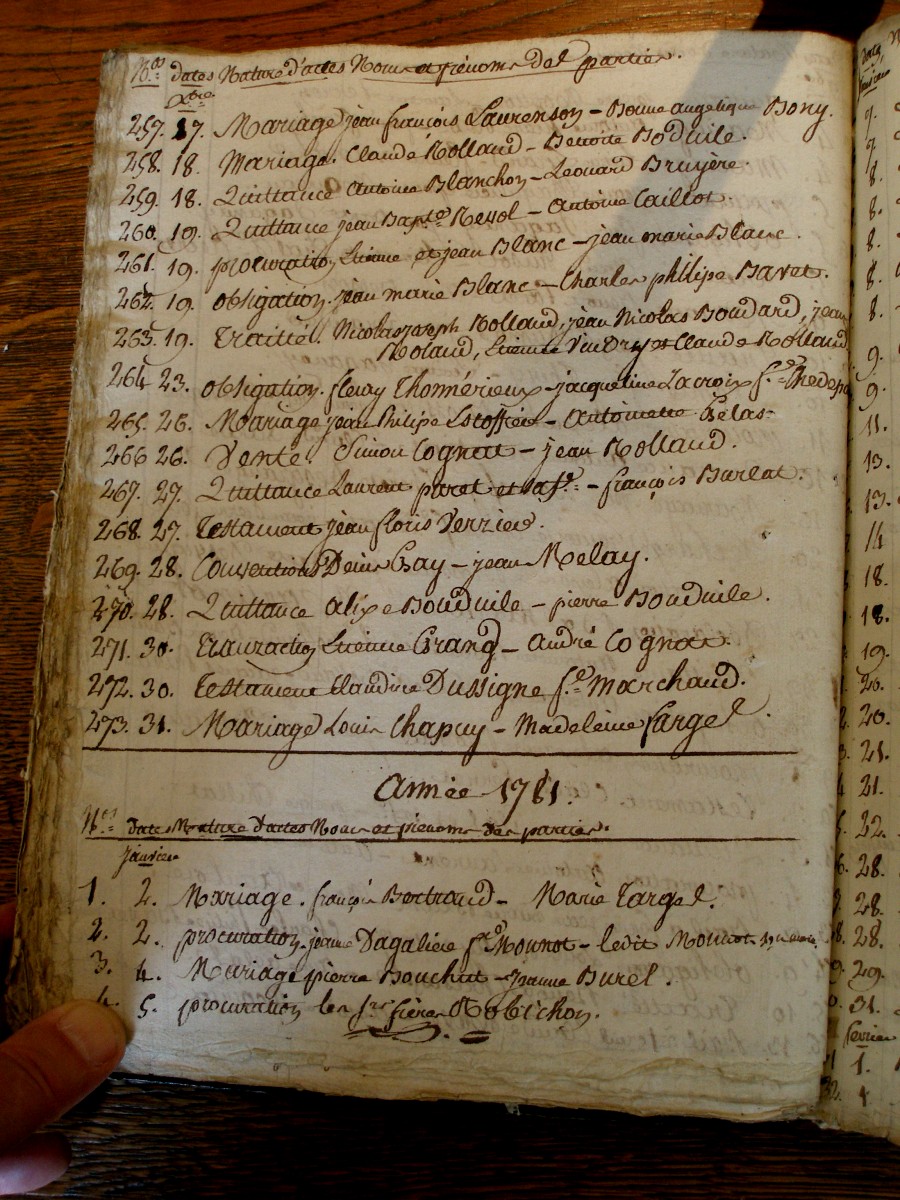 N.os dates Nature d'actes Noms et prénoms des parties.
Xbre
257. 17. Mariage jean françois Laurenson - Bonne angelique Bony.
258. 18. Mariage. Claude Rolland - Benoite Boduile.
259. 18. Quittance Antoine Blanchon - Leonard Bruyère.
260. 19. Quittance jean Bapt.e Revol - Antoine Caillot.
261. 19. procuration Etienne et jean Blanc - jean marie Blanc.
262. 19. obligation. jean marie Blanc - Charles philipe Bavet.
263. 19. Traitté. Nicolas joseph Rolland, jean Nicolas Boudard, jean
Roland, Etienne Vindry et Claude Rolland
264 23. obligation. fleury Thomérieux - jacqueline Lacroix f.e
265. 26. Mariage jean Philipe - Antoinette Pelas-
266 26. Vente. Simon Cognat - jean Rolland.
267. 27. Quittance Laurent paret et sa f.e - françois Burlat.
268. 27. Testament jean floris Verrier.
269. 28. Conventions Denis Gay - jean Melay.
270. 28. Quittance alixe Bouduile - pierre Bouduile.
271. 30. Transaction Etienne Grang - André Cognat.
272. 30. Testament Claudine Dussigne f.e Marchand.
273. 31. Mariage Louis Chapuy - Madeleine fargel.
Année 1781.
N.os dates Nature d'actes Noms et prénoms des parties.
janvier
1. 2. Mariage. françois Bertrand - Marie Targel.
2. 2. procuration. jeanne Dagalière f.e Mounot - ledit Mounot
3. 4. Mariage pierre Bouchut - jeanne Burel.
4. 5. procuration les srs frères Robichon.
janvier
7.
7.
8.
8.
8.
8.
8.
9.
9.
11.
13.
13.
14
18.
18.
19.
20.
20.
21.
21.
22.
28.
28.
28.
29.
31.
fevrier
1.
4